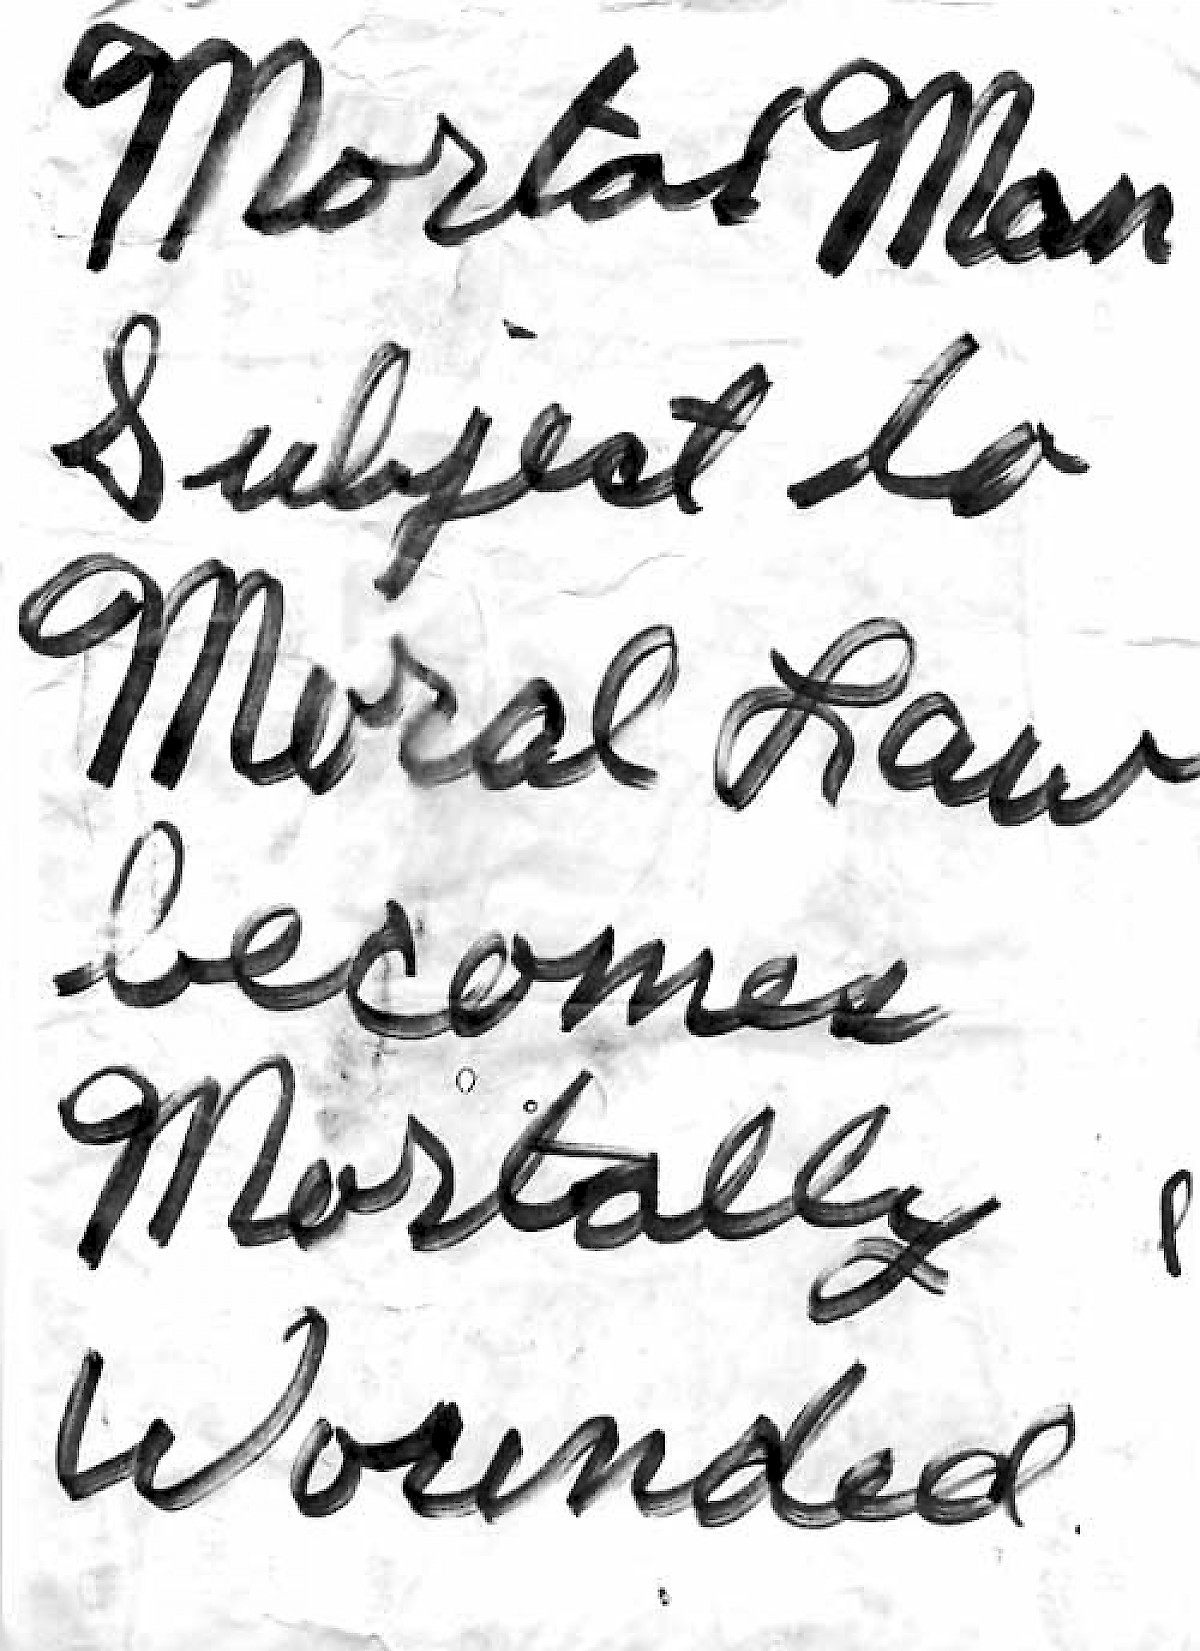 Mortal Man
Subject to
Moral Law
becomes
Mortally
Wounded